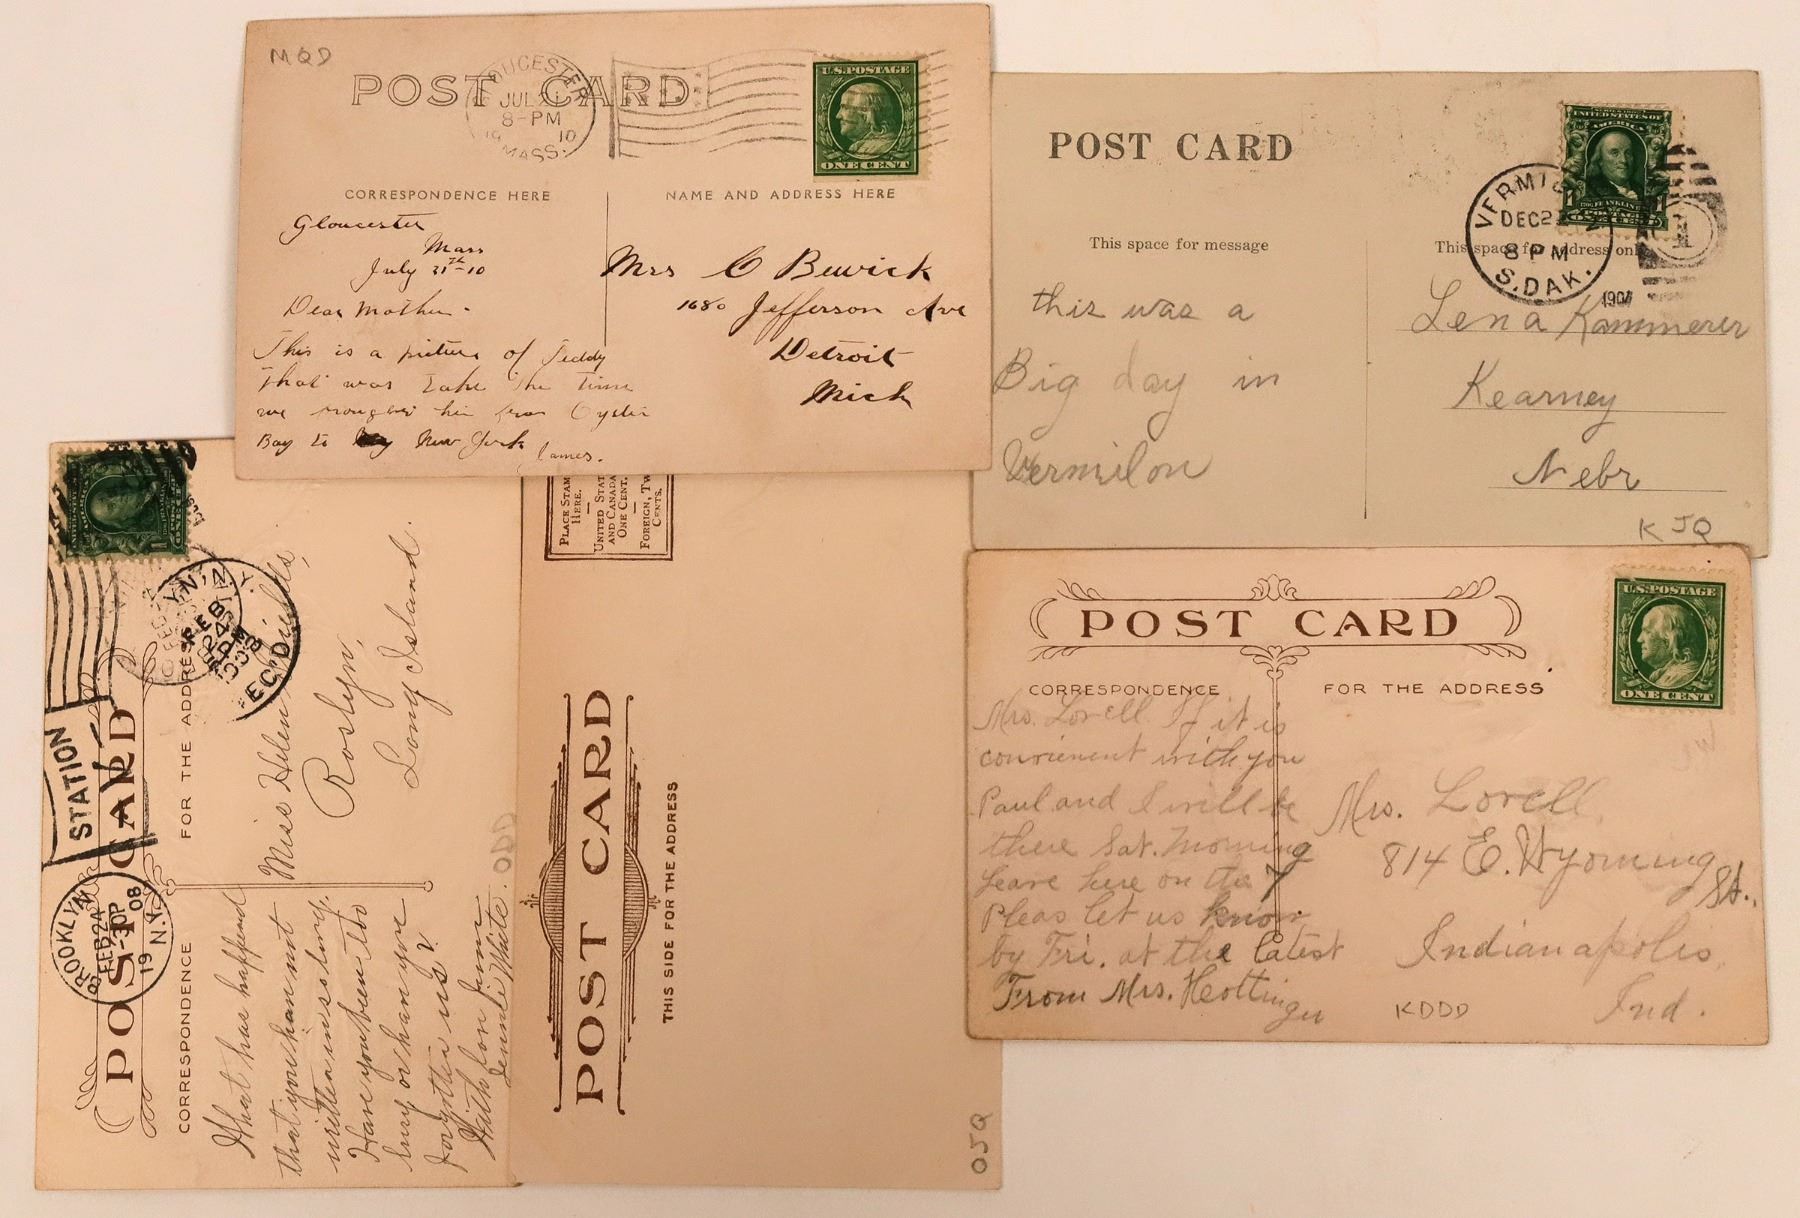 MQD
POST CARD
GLOUCESTER
JUL 21
8-PM
19 10
MASS.
U.S.POSTAGE
ONE CENT
CORRESPONDENCE HERE
NAME AND ADDRESS HERE
Gloucester
Mass
July 21st-10
Dear Mother-
This is a picture of Teddy
that was take the time
we brought him from Oyster
Bay to New York
James.
Mrs C Bewick
1680 Jefferson Ave
Detroit
Mich
POST CARD
This space for message
This space for address only
UNITED STATES OF
AMERICA
DEC 2
8 PM
S. DAK.
this was a
Big day in
Vermilon
Lena Kammerer
Kearney
Nebr
KJQ
STATION
BROOKLYN
FEB 24
-30P
19 08
N.Y.
FEB
24
1908
REC'D
POST CARD
CORRESPONDENCE
FOR THE ADDRESS
What has happened
that you have not
written in so long.
Have you been to
Lucy or have you
forgotten us?
With love from
Jennie White.
Miss Helen
Roslyn,
Long Island.
ODD
PLACE STAMP
HERE.
UNITED STATES
AND CANADA
ONE CENT.
FOREIGN, TWO
CENTS.
POST CARD
THIS SIDE FOR THE ADDRESS
OJQ
POST CARD
CORRESPONDENCE
FOR THE ADDRESS
U.S.POSTAGE
ONE CENT
Mrs. Lovell If it is
convienent with you
Paul and I will be
there Sat. Morning
Leave here on the 7
Pleas let us know
by Fri. at the latest
From Mrs. Hottinger
Mrs. Lovell
814 E. Wyoming St.,
Indianapolis,
Ind.
KDDD